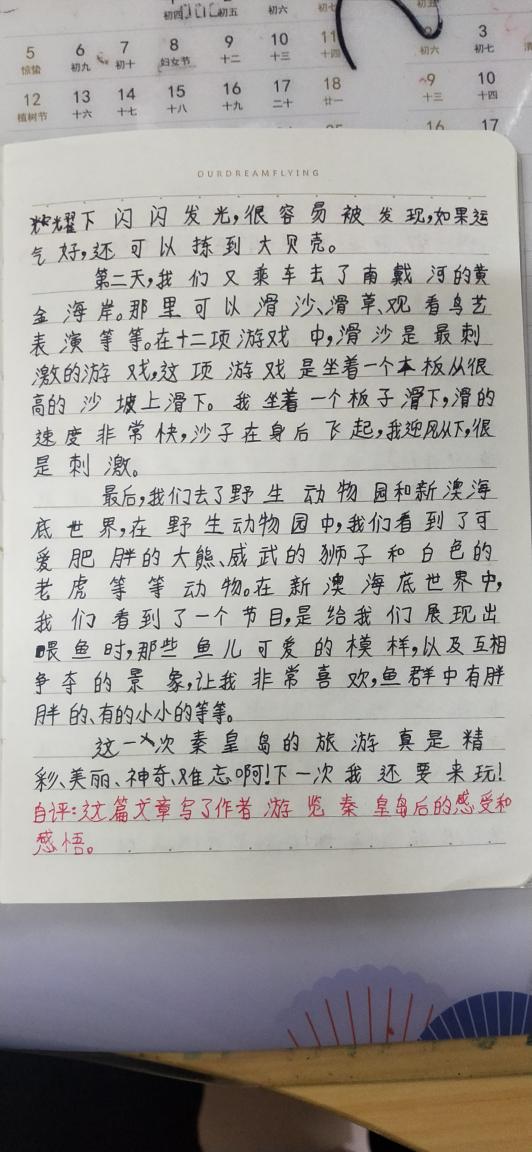 初四 初五 初六 初七 初五
5 6 7 8 9 10 11 2 3
惊蛰 初九 初十 妇女节 十二 十三 十四 初六 初七
12 13 14 15 16 17 18 9 10
植树节 十六 十七 十八 十九 二十 廿一 十三 十四
16 17
OURDREAMFLYING
耀下闪闪发光,很容易被发现,如果运
气好,还可以拣到大贝壳。
第二天,我们又乘车去了南戴河的黄
金海岸。那里可以滑沙、滑草、观看鸟艺
表演等等。在十二项游戏中,滑沙是最刺
激的游戏,这项游戏是坐着一个木板从很
高的沙坡上滑下。我坐着一个板子滑下,滑的
速度非常快,沙子在身后飞起,我迎风从下,很
是刺激。
最后,我们去了野生动物园和新澳海
底世界,在野生动物园中,我们看到了可
爱肥胖的大熊、威武的狮子和白色的
老虎等等动物。在新澳海底世界中,
我们看到了一个节目,是给我们展现出
喂鱼时,那些鱼儿可爱的模样,以及互相
争夺的景象,让我非常喜欢,鱼群中有胖
胖的、有的小小的等等。
这一次秦皇岛的旅游真是精
彩、美丽、神奇、难忘啊!下一次我还要来玩!
自评:这篇文章写了作者游览秦皇岛后的感受和
感悟。